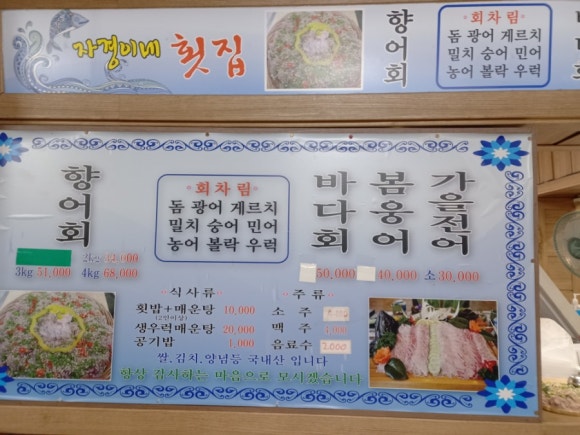 자경이네 횟집
향어회
회차림
돔 광어 게르치
밀치 숭어 민어
농어 볼락 우럭
향어회
3kg 51,000 4kg 68,000
회차림
돔 광어 게르치
밀치 숭어 민어
농어 볼락 우럭
바다회
50,000
봄웅어
40,000
가을전어
소 30,000
식사류
횟밥+매운탕 10,000
(2인이상)
생우럭매운탕 20,000
공기밥 1,000
주류
소주
맥주 4,000
음료수 2,000
쌀.김치.양념등 국내산 입니다
항상 감사하는 마음으로 모시겠습니다